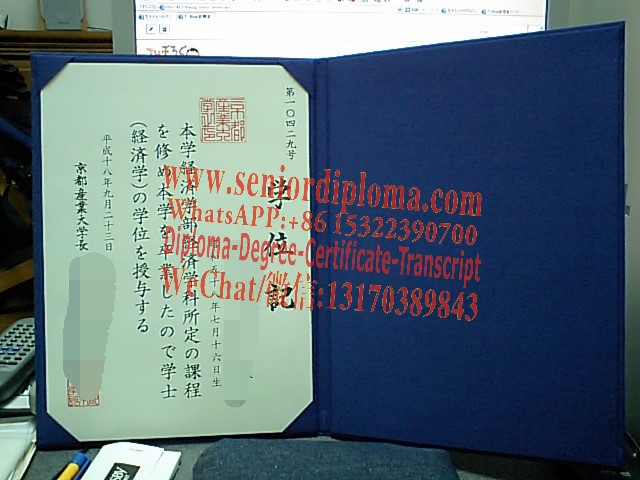 第一〇四二九号
学位記
年七月十六日生
本学経済学部経済学科所定の課程
を修め本学を卒業したので学士
(経済学)の学位を授与する
平成十八年九月二十三日
京都産業大学長
京都産業大学之印
www.seniordiploma.com
WhatsAPP:+86 15322390700
Diploma-Degree-Certificate-Transcript
WeChat/微信:13170389843